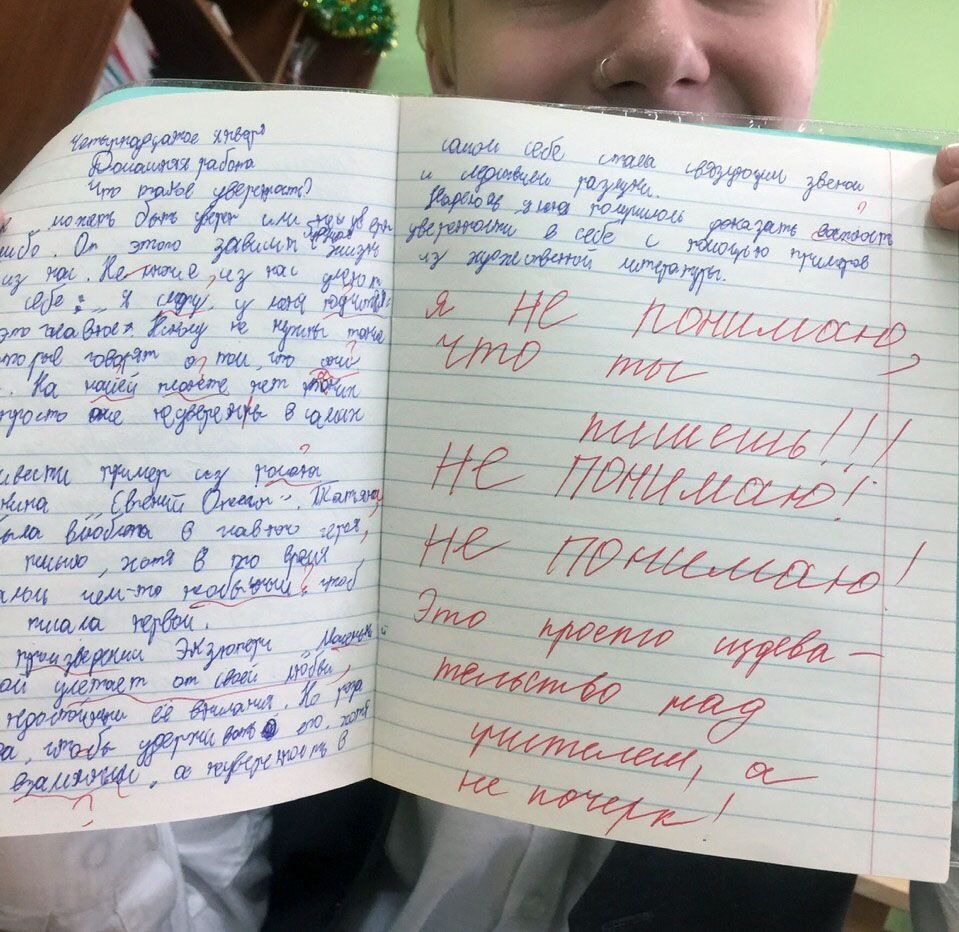 Четырнадцатое января
Домашняя работа
Что такое уверенность?
может быть уверен или
либо. От этого зависит жизнь
из нас. Не многие, из нас
себе: „ Я у меня
это главное". Никому не нужны
говорят о том, что они
. На нашей планете нет таких
просто они неуверенны в самих
ивести пример из романа
„ Евгений Онегин". Татьяна
была влюблена в главного героя,
письмо, хотя в то время
чем-то необычным, чтоб
писала первой.
произведении Экзюпери „ Маленький
ой улетает от своей любви
недостойным её внимания. Но
а, чтобы удержать его, хотя
взаимными, а неуверенность в
самой себе стала связующим звеном
и разлуки.
Надеюсь, у меня получилось доказать важность
уверенности в себе с помощью примеров
из художественной литературы.
Я не понимаю,
что ты
пишешь!!!
Не понимаю!
Не понимаю!
Это просто издева-
тельство над
учителем, а
не почерк!